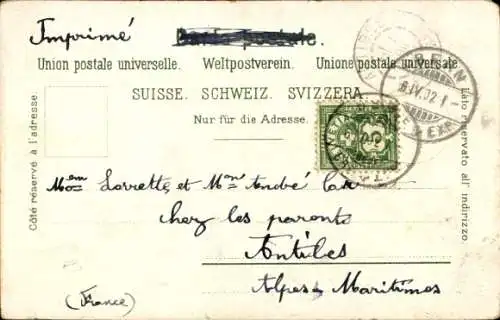 Imprimé
Carte postale.
Union postale universelle. Weltpostverein. Unione postale universale.
SUISSE. SCHWEIZ. SVIZZERA.
Nur für die Adresse.
Côté réservé à l'adresse.
Lato riservato all' indirizzo.
BERN
8.IV.02.1-
EXP.
5
Mem Lorrette et Mon André
chez les parents
Antibes
Alpes Maritimes
(France)